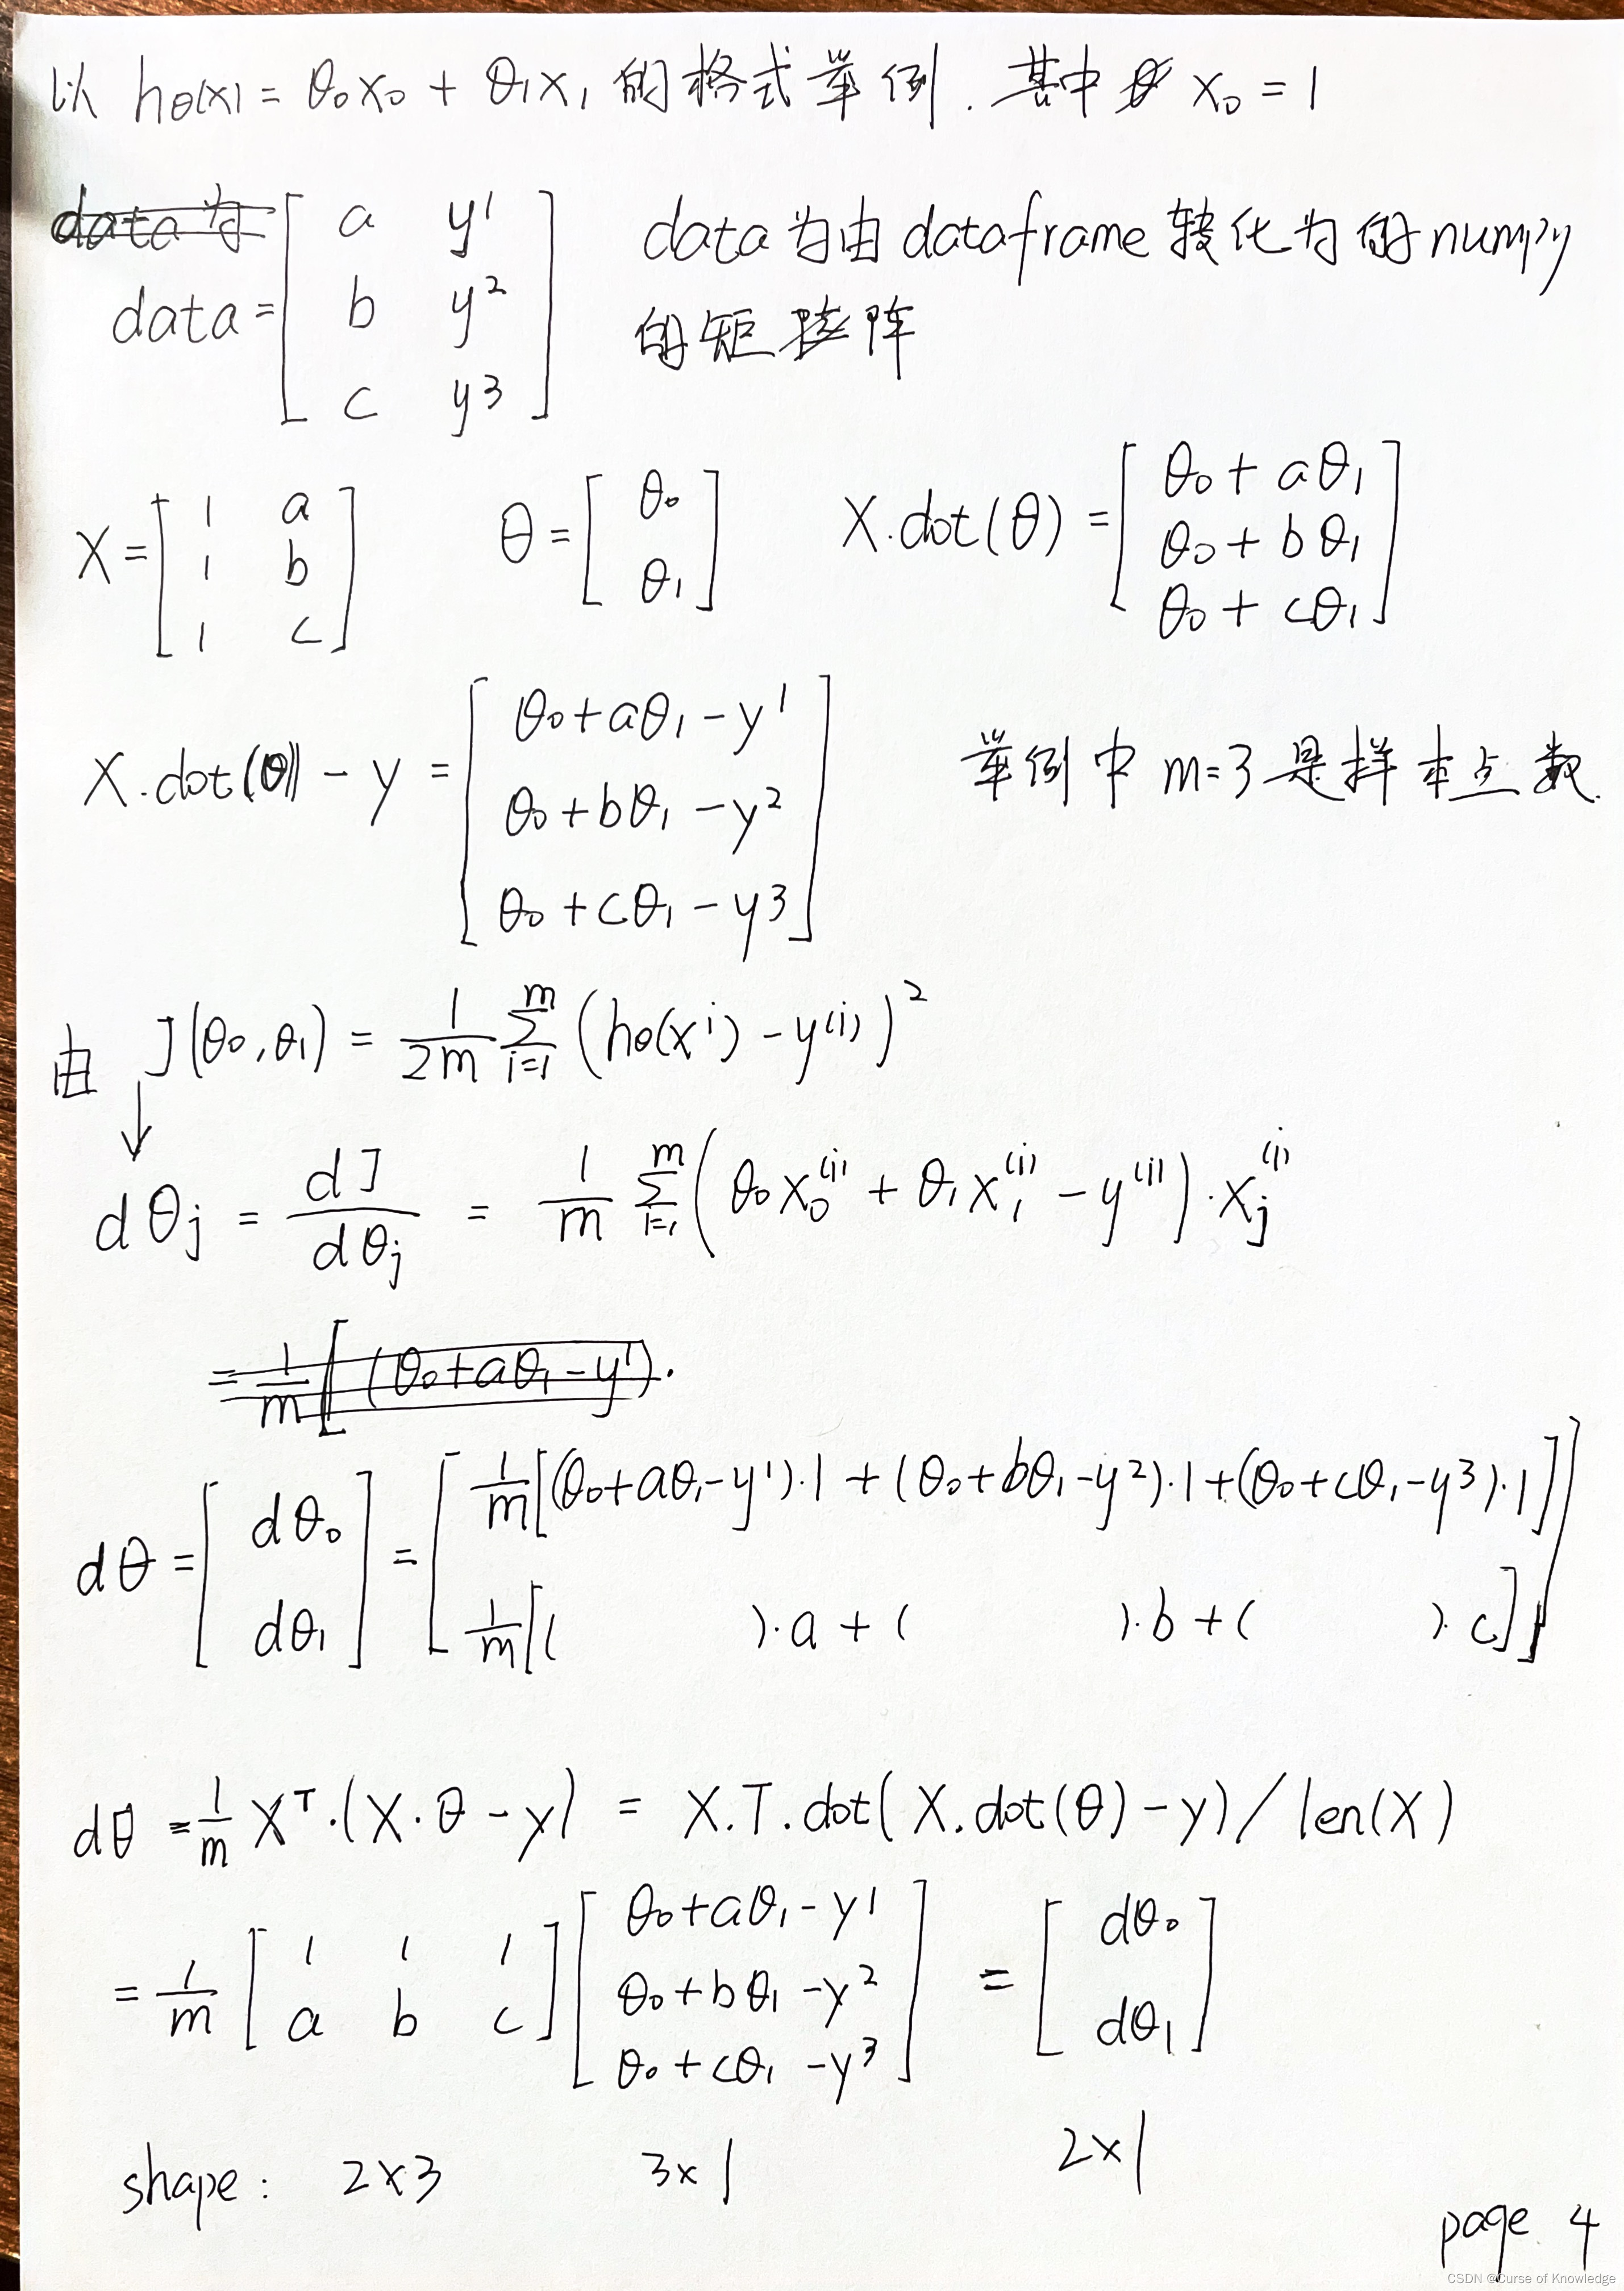 以 hθ(x) = θ₀x₀ + θ₁x₁ 的格式举例. 其中 x₀ = 1
data为
data = [ a y¹ ; b y² ; c y³ ] data为由dataframe转化为的numpy
的矩阵
X = [ 1 a ; 1 b ; 1 c ] θ = [ θ₀ ; θ₁ ] X.dot(θ) = [ θ₀ + aθ₁ ; θ₀ + bθ₁ ; θ₀ + cθ₁ ]
X.dot(θ) - y = [ θ₀ + aθ₁ - y¹ ; θ₀ + bθ₁ - y² ; θ₀ + cθ₁ - y³ ] 举例中 m=3 是样本点数.
由 J(θ₀, θ₁) = 1/2m Σ_{i=1}^{m} (hθ(xⁱ) - y⁽ⁱ⁾)²
↓
dθj = dJ/dθj = 1/m Σ_{i=1}^{m} (θ₀x₀⁽ⁱ⁾ + θ₁x₁⁽ⁱ⁾ - y⁽ⁱ⁾)·xj⁽ⁱ⁾
= 1/m [ (θ₀ + aθ₁ - y¹).
dθ = [ dθ₀ ; dθ₁ ] = [ 1/m[(θ₀ + aθ₁ - y¹)·1 + (θ₀ + bθ₁ - y²)·1 + (θ₀ + cθ₁ - y³)·1] ; 1/m[( )·a + ( )·b + ( )·c] ]
dθ = 1/m Xᵀ·(X·θ - y) = X.T.dot(X.dot(θ) - y) / len(X)
= 1/m [ 1 1 1 ; a b c ] [ θ₀ + aθ₁ - y¹ ; θ₀ + bθ₁ - y² ; θ₀ + cθ₁ - y³ ] = [ dθ₀ ; dθ₁ ]
shape: 2×3 3×1 2×1
page 4
CSDN @Curse of Knowledge